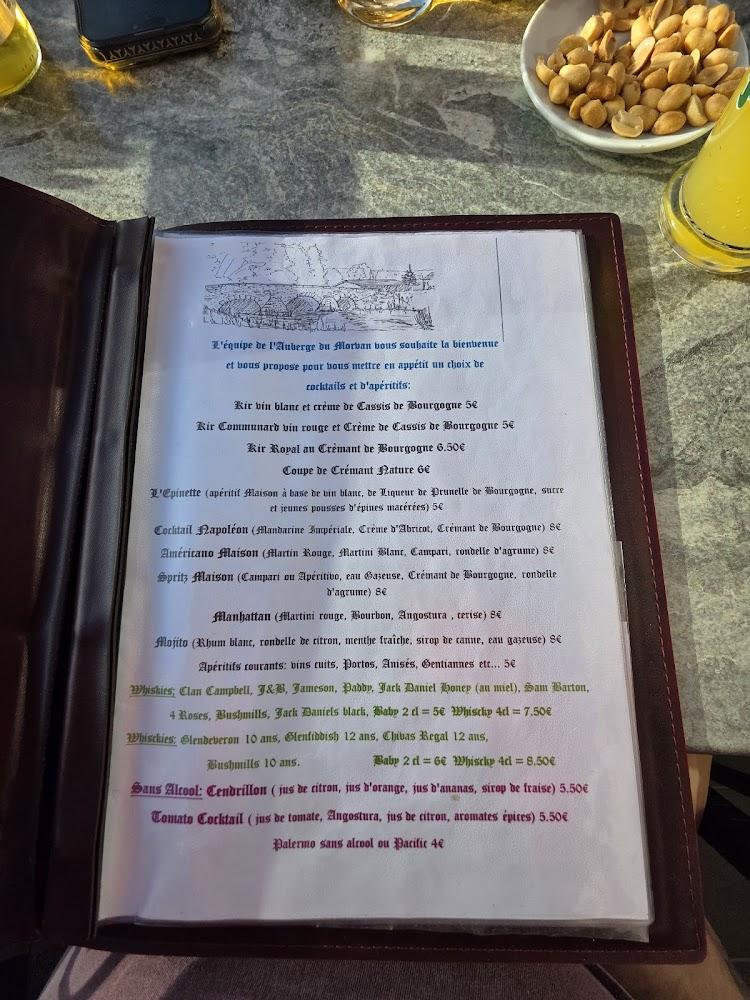 L'équipe de l'Auberge du Morvan vous souhaite la bienvenue
et vous propose pour vous mettre en appétit un choix de
cocktails et d'apéritifs:
Kir vin blanc et crème de Cassis de Bourgogne 5€
Kir Communard vin rouge et Crème de Cassis de Bourgogne 5€
Kir Royal au Crémant de Bourgogne 6.50€
Coupe de Crémant Nature 6€
L'Epinette (apéritif Maison à base de vin blanc, de Liqueur de Prunelle de Bourgogne, sucre
et jeunes pousses d'épines macérées) 5€
Cocktail Napoléon (Mandarine Impériale, Crème d'Abricot, Crémant de Bourgogne) 8€
Américano Maison (Martin Rouge, Martini Blanc, Campari, rondelle d'agrume) 8€
Spritz Maison (Campari ou Apéritivo, eau Gazeuse, Crémant de Bourgogne, rondelle
d'agrume) 8€
Manhattan (Martini rouge, Bourbon, Angostura , cerise) 8€
Mojito (Rhum blanc, rondelle de citron, menthe fraîche, sirop de canne, eau gazeuse) 8€
Apéritifs courants: vins cuits, Portos, Anisés, Gentiannes etc... 5€
Whiskies: Clan Campbell, J&B, Jameson, Paddy, Jack Daniel Honey (au miel), Sam Barton,
4 Roses, Bushmills, Jack Daniels black, Baby 2 cl = 5€ Whiscky 4cl = 7.50€
Whisckies: Glendeveron 10 ans, Glenfiddish 12 ans, Chivas Regal 12 ans,
Bushmills 10 ans. Baby 2 cl = 6€ Whiscky 4cl = 8.50€
Sans Alcool: Cendrillon ( jus de citron, jus d'orange, jus d'ananas, sirop de fraise) 5.50€
Tomato Cocktail ( jus de tomate, Angostura, jus de citron, aromates épices) 5.50€
Palermo sans alcool ou Pacific 4€